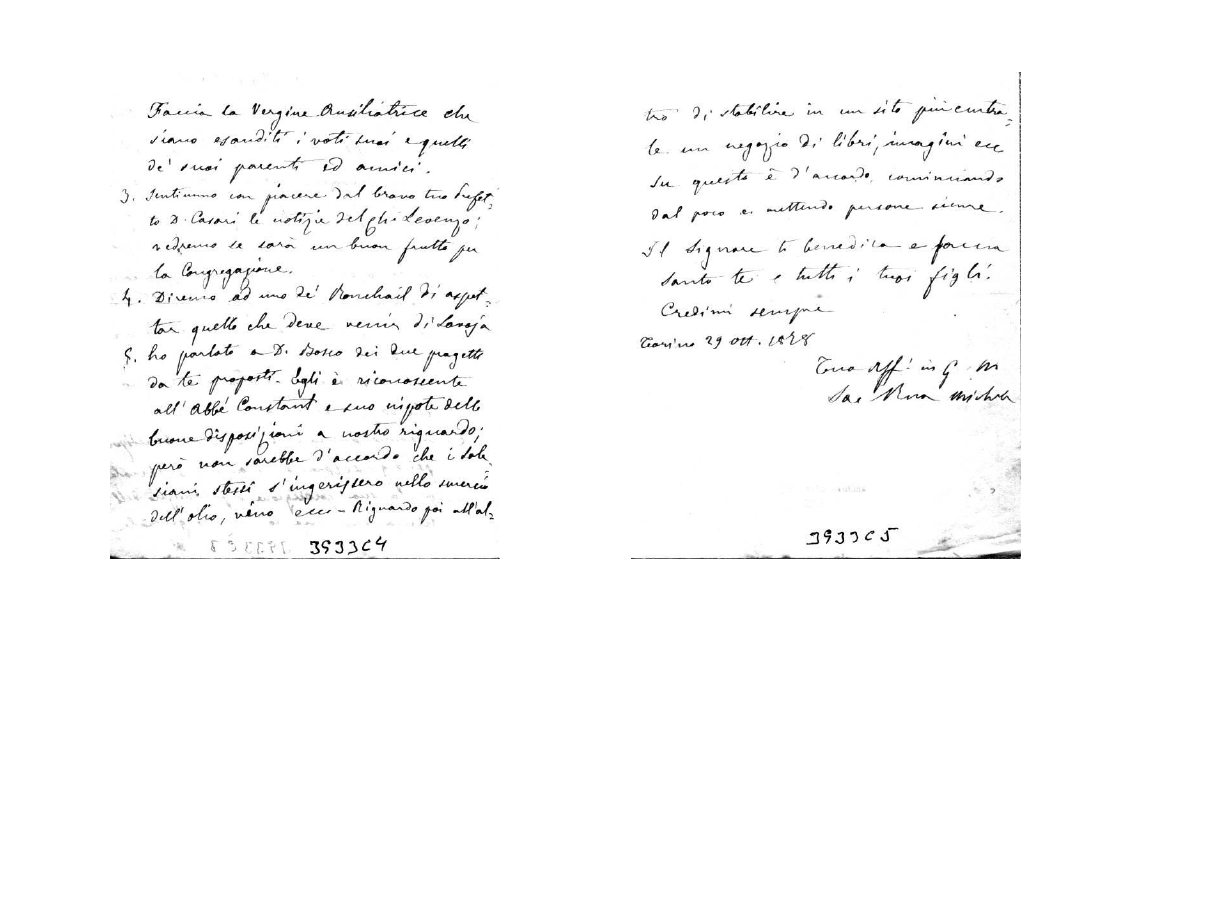 Faccia la Vergine Ausiliatrice che
siano esauditi i voti suoi e quelli
de' suoi parenti ed amici.
3. Sentimmo con piacere dal bravo tuo Prefet-
to D. Casari le notizie del ch. Levenzo;
vedremo se sarà un buon frutto per
la Congregazione.
4. Diremo ad uno de' Ronchail di aspet-
tar quello che deve venir di Savoja
5. ho parlato a D. Bosco dei due progetti
da te proposti. Egli è riconoscente
all' Abbé Constant e suo nipote delle
buone disposizioni a nostro riguardo;
però non sarebbe d'accordo che i Sale
siani stessi s'ingerissero nello smercio
dell'olio, vino ecc - Riguardo poi all'al-
3933C4
tro di stabilire in un sito più centra-
le un negozio di libri, imagini ecc
su questo è d'accordo, cominciando
dal poco e mettendo persone sicure.
Il Signore ti benedica e faccia
santo te e tutti i tuoi figli.
Credimi sempre
Torino 29 Ott. 1878
Tuo Aff! in G M
Sac Rua Michele
3933C5